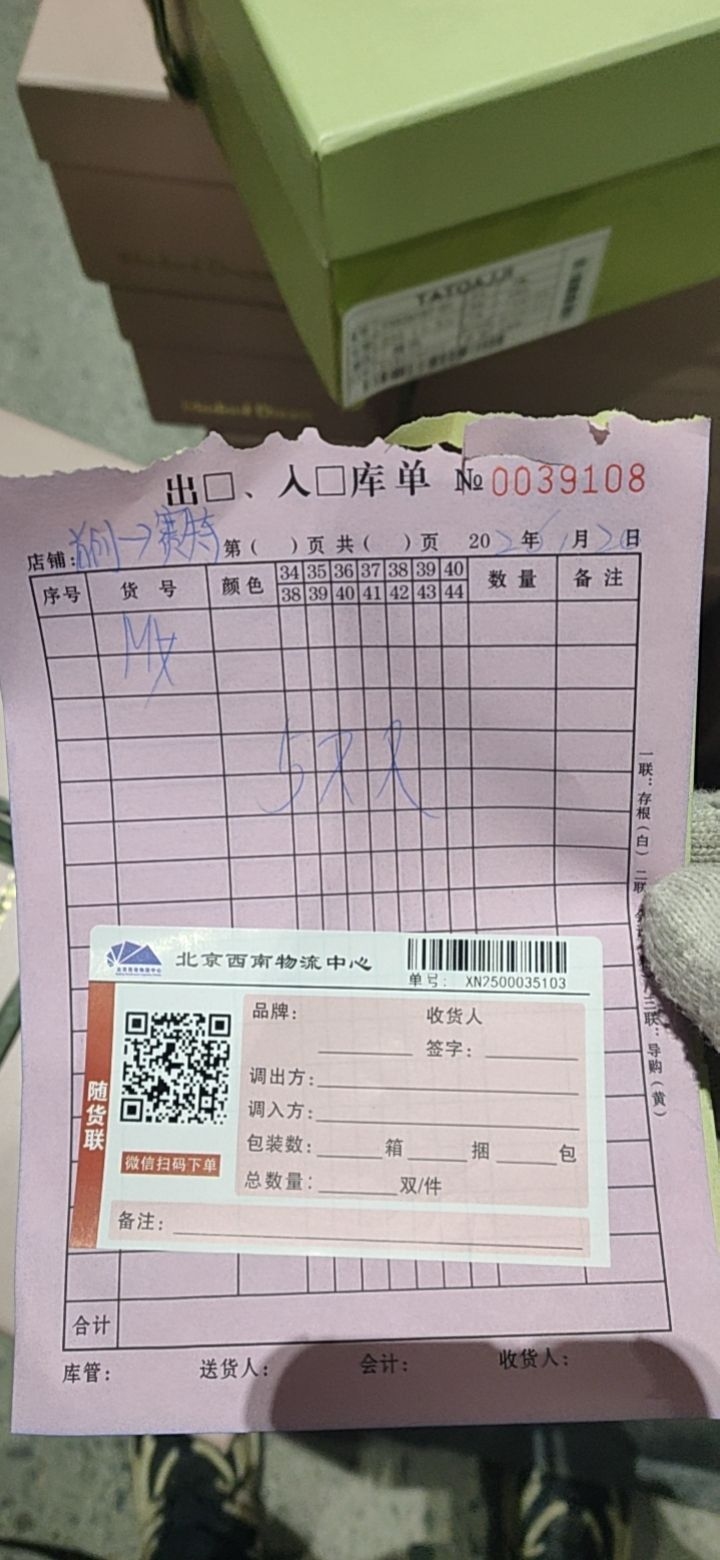 TATOAJJI
出□、入□库单 № 0039108
店铺: →赛特 第( )页 共( )页 2026年1月20日
序号 货号 颜色 34 35 36 37 38 39 40 数量 备注
38 39 40 41 42 43 44
5双
一联:存根(白) 二联 三联:导购(黄)
北京西南物流中心
单号: XN2500035103
随货联
微信扫码下单
品牌: 收货人
签字:
调出方:
调入方:
包装数: 箱 捆 包
总数量: 双/件
备注:
合计
库管: 送货人: 会计: 收货人: